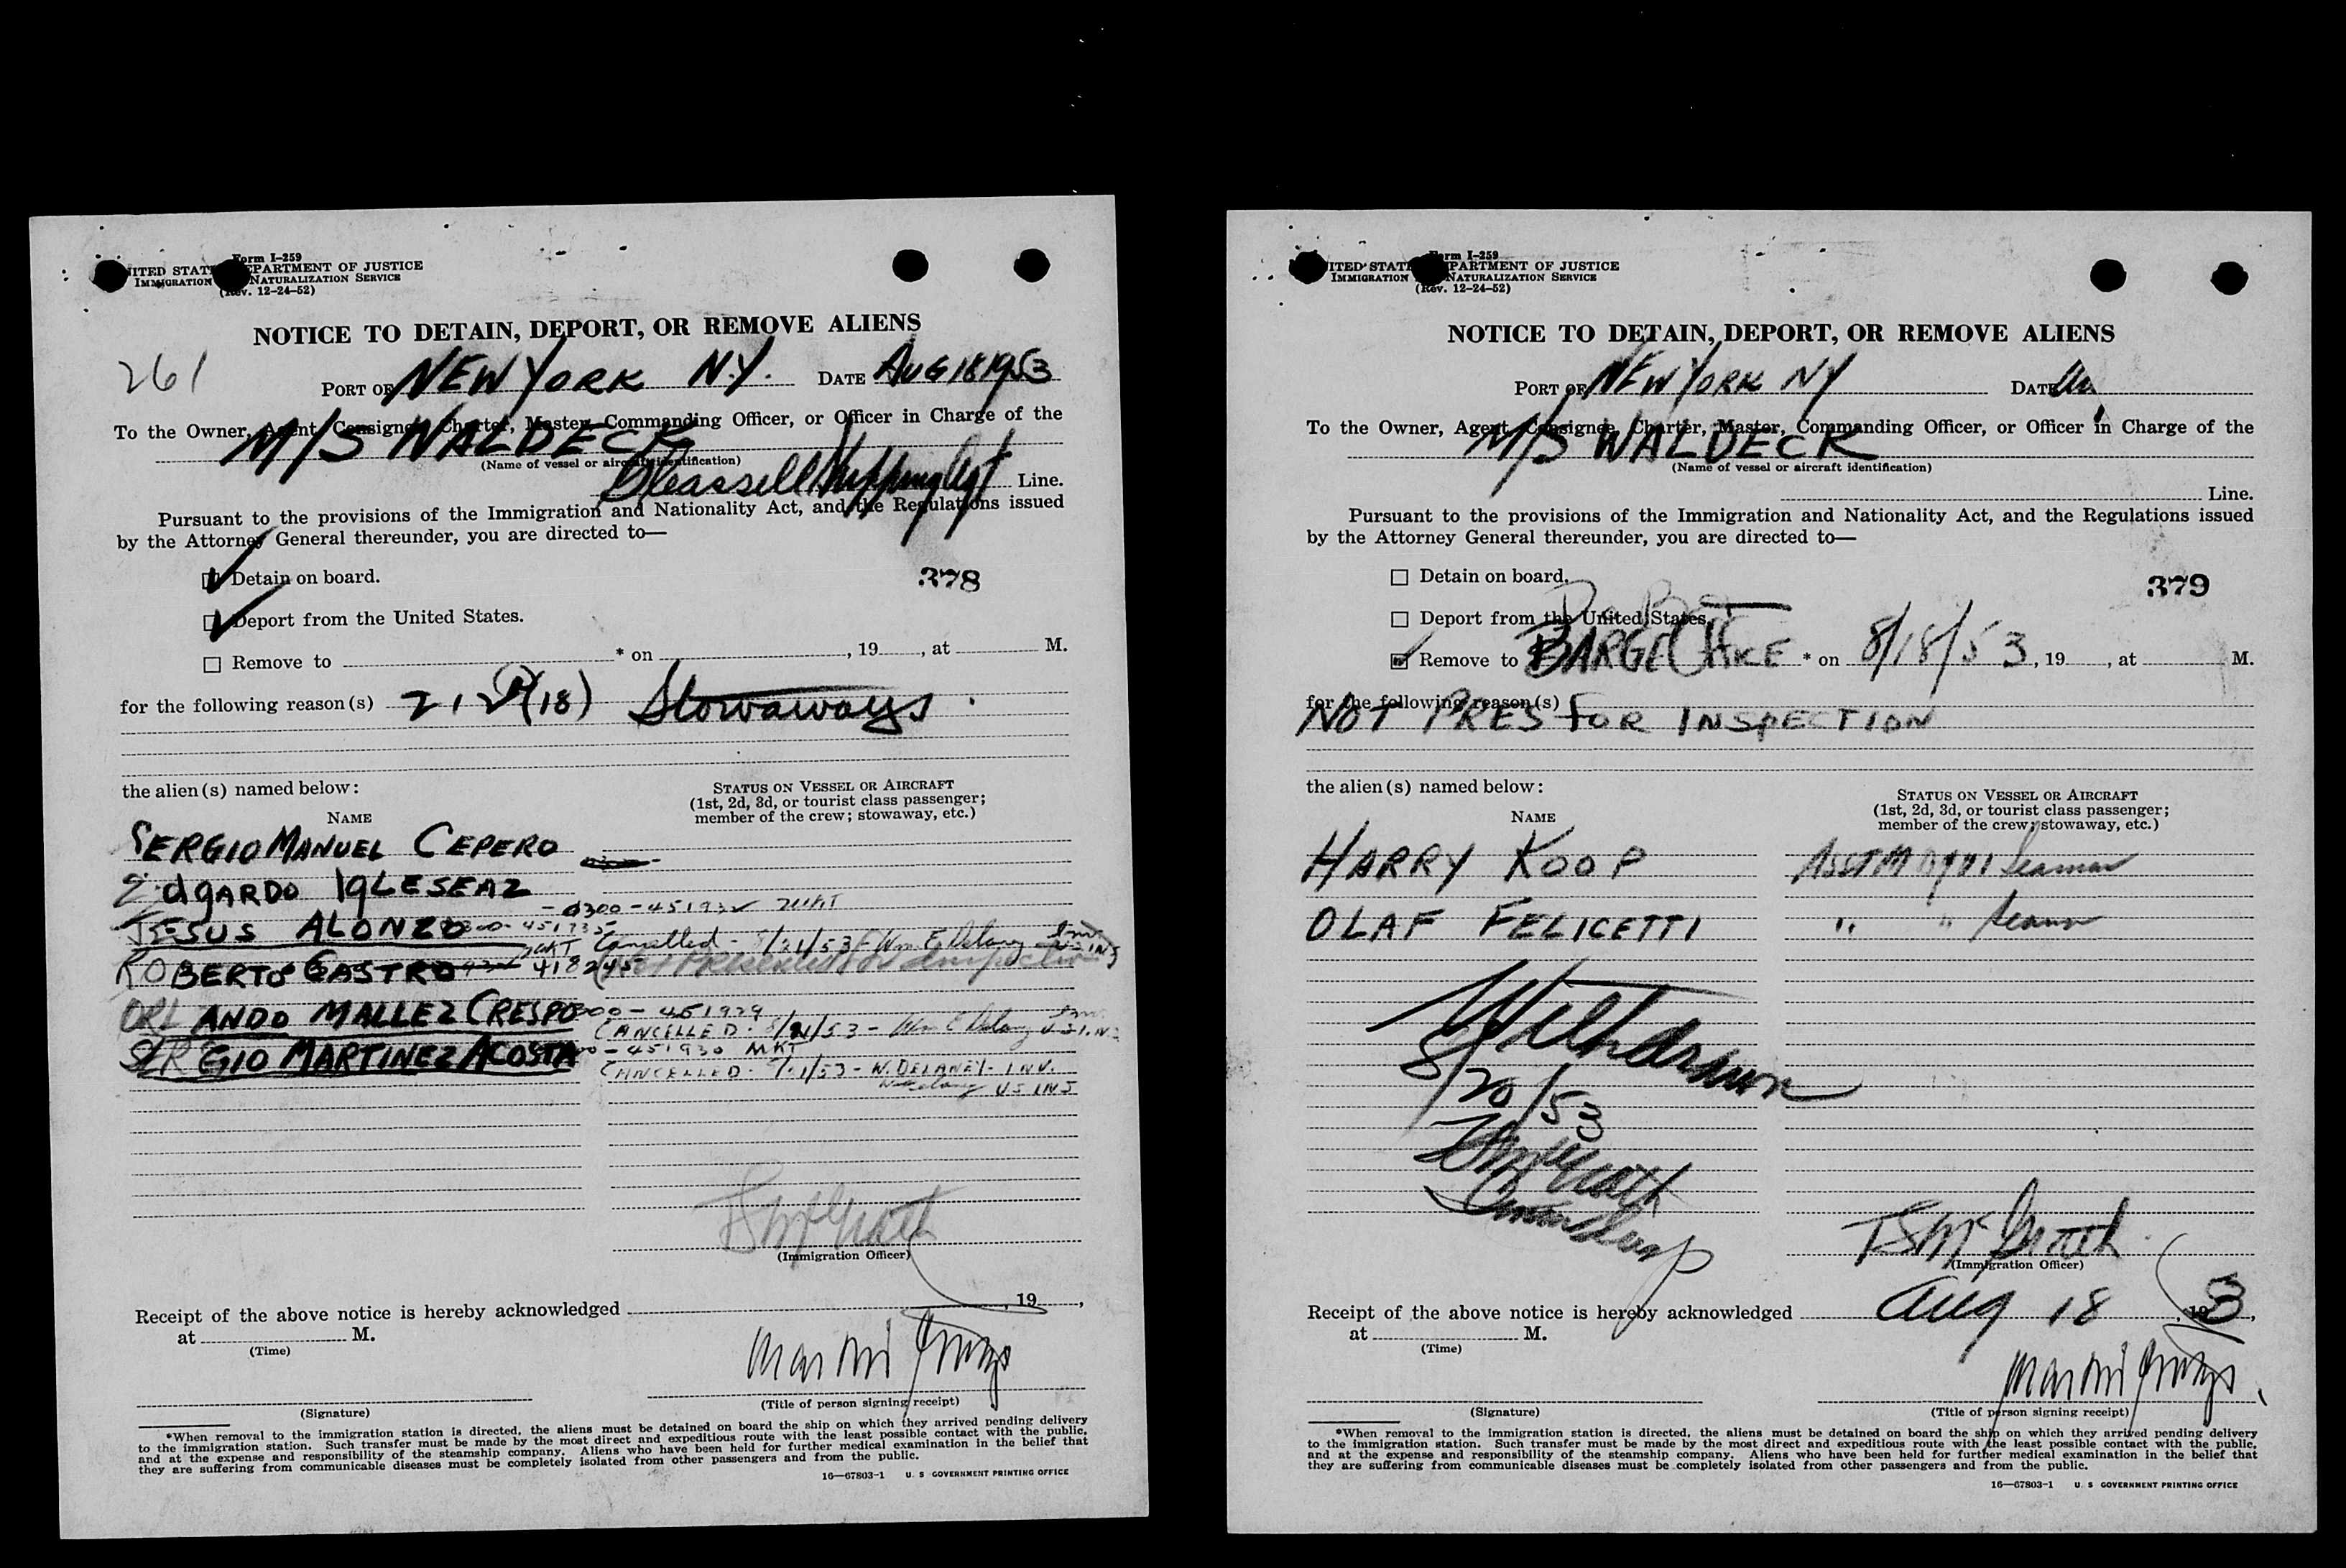 Form I-259
UNITED STATES DEPARTMENT OF JUSTICE
IMMIGRATION NATURALIZATION SERVICE
(Rev. 12-24-52)
NOTICE TO DETAIN, DEPORT, OR REMOVE ALIENS
261
PORT OF NEW YORK N.Y. DATE AUG 18 1953
To the Owner, Agent, Consignee, Charter, Master, Commanding Officer, or Officer in Charge of the
M/S WALDECK
(Name of vessel or aircraft identification)
Line.
Pursuant to the provisions of the Immigration and Nationality Act, and the Regulations issued
by the Attorney General thereunder, you are directed to—
Detain on board.
378
Deport from the United States.
Remove to * on , 19 , at M.
for the following reason(s) 212 (18) Stowaways.
the alien(s) named below:
STATUS ON VESSEL OR AIRCRAFT
(1st, 2d, 3d, or tourist class passenger;
member of the crew; stowaway, etc.)
NAME
SERGIO MANUEL CEPERO
EDGARDO IGLESEAZ
JESUS ALONZO
Cancelled - 8/21/53
ROBERTO GASTRO
ORLANDO MALLEZ CRESPO
CANCELLED - 8/21/53
SERGIO MARTINEZ ACOSTA
CANCELLED - W. DELANEY - INV.
(Immigration Officer)
Receipt of the above notice is hereby acknowledged , 19 ,
at M.
(Time)
(Signature)
(Title of person signing receipt)
*When removal to the immigration station is directed, the aliens must be detained on board the ship on which they arrived pending delivery
to the immigration station. Such transfer must be made by the most direct and expeditious route with the least possible contact with the public,
and at the expense and responsibility of the steamship company. Aliens who have been held for further medical examination in the belief that
they are suffering from communicable diseases must be completely isolated from other passengers and from the public.
16—67803-1 U. S. GOVERNMENT PRINTING OFFICE
Form I-259
UNITED STATES DEPARTMENT OF JUSTICE
IMMIGRATION NATURALIZATION SERVICE
(Rev. 12-24-52)
NOTICE TO DETAIN, DEPORT, OR REMOVE ALIENS
PORT OF NEW YORK NY DATE
To the Owner, Agent, Consignee, Charter, Master, Commanding Officer, or Officer in Charge of the
M/S WALDECK
(Name of vessel or aircraft identification)
Line.
Pursuant to the provisions of the Immigration and Nationality Act, and the Regulations issued
by the Attorney General thereunder, you are directed to—
Detain on board.
379
Deport from the United States.
Remove to BARGE OFFICE * on 8/18/53, 19 , at M.
for the following reason(s)
NOT PRES FOR INSPECTION
the alien(s) named below:
STATUS ON VESSEL OR AIRCRAFT
(1st, 2d, 3d, or tourist class passenger;
member of the crew; stowaway, etc.)
NAME
HARRY KOOP Seaman
OLAF FELICETTI " " Seaman
Withdrawn
8/20/53
(Immigration Officer)
Receipt of the above notice is hereby acknowledged Aug 18 , 19 3,
at M.
(Time)
(Signature)
(Title of person signing receipt)
*When removal to the immigration station is directed, the aliens must be detained on board the ship on which they arrived pending delivery
to the immigration station. Such transfer must be made by the most direct and expeditious route with the least possible contact with the public,
and at the expense and responsibility of the steamship company. Aliens who have been held for further medical examination in the belief that
they are suffering from communicable diseases must be completely isolated from other passengers and from the public.
16—67803-1 U. S. GOVERNMENT PRINTING OFFICE